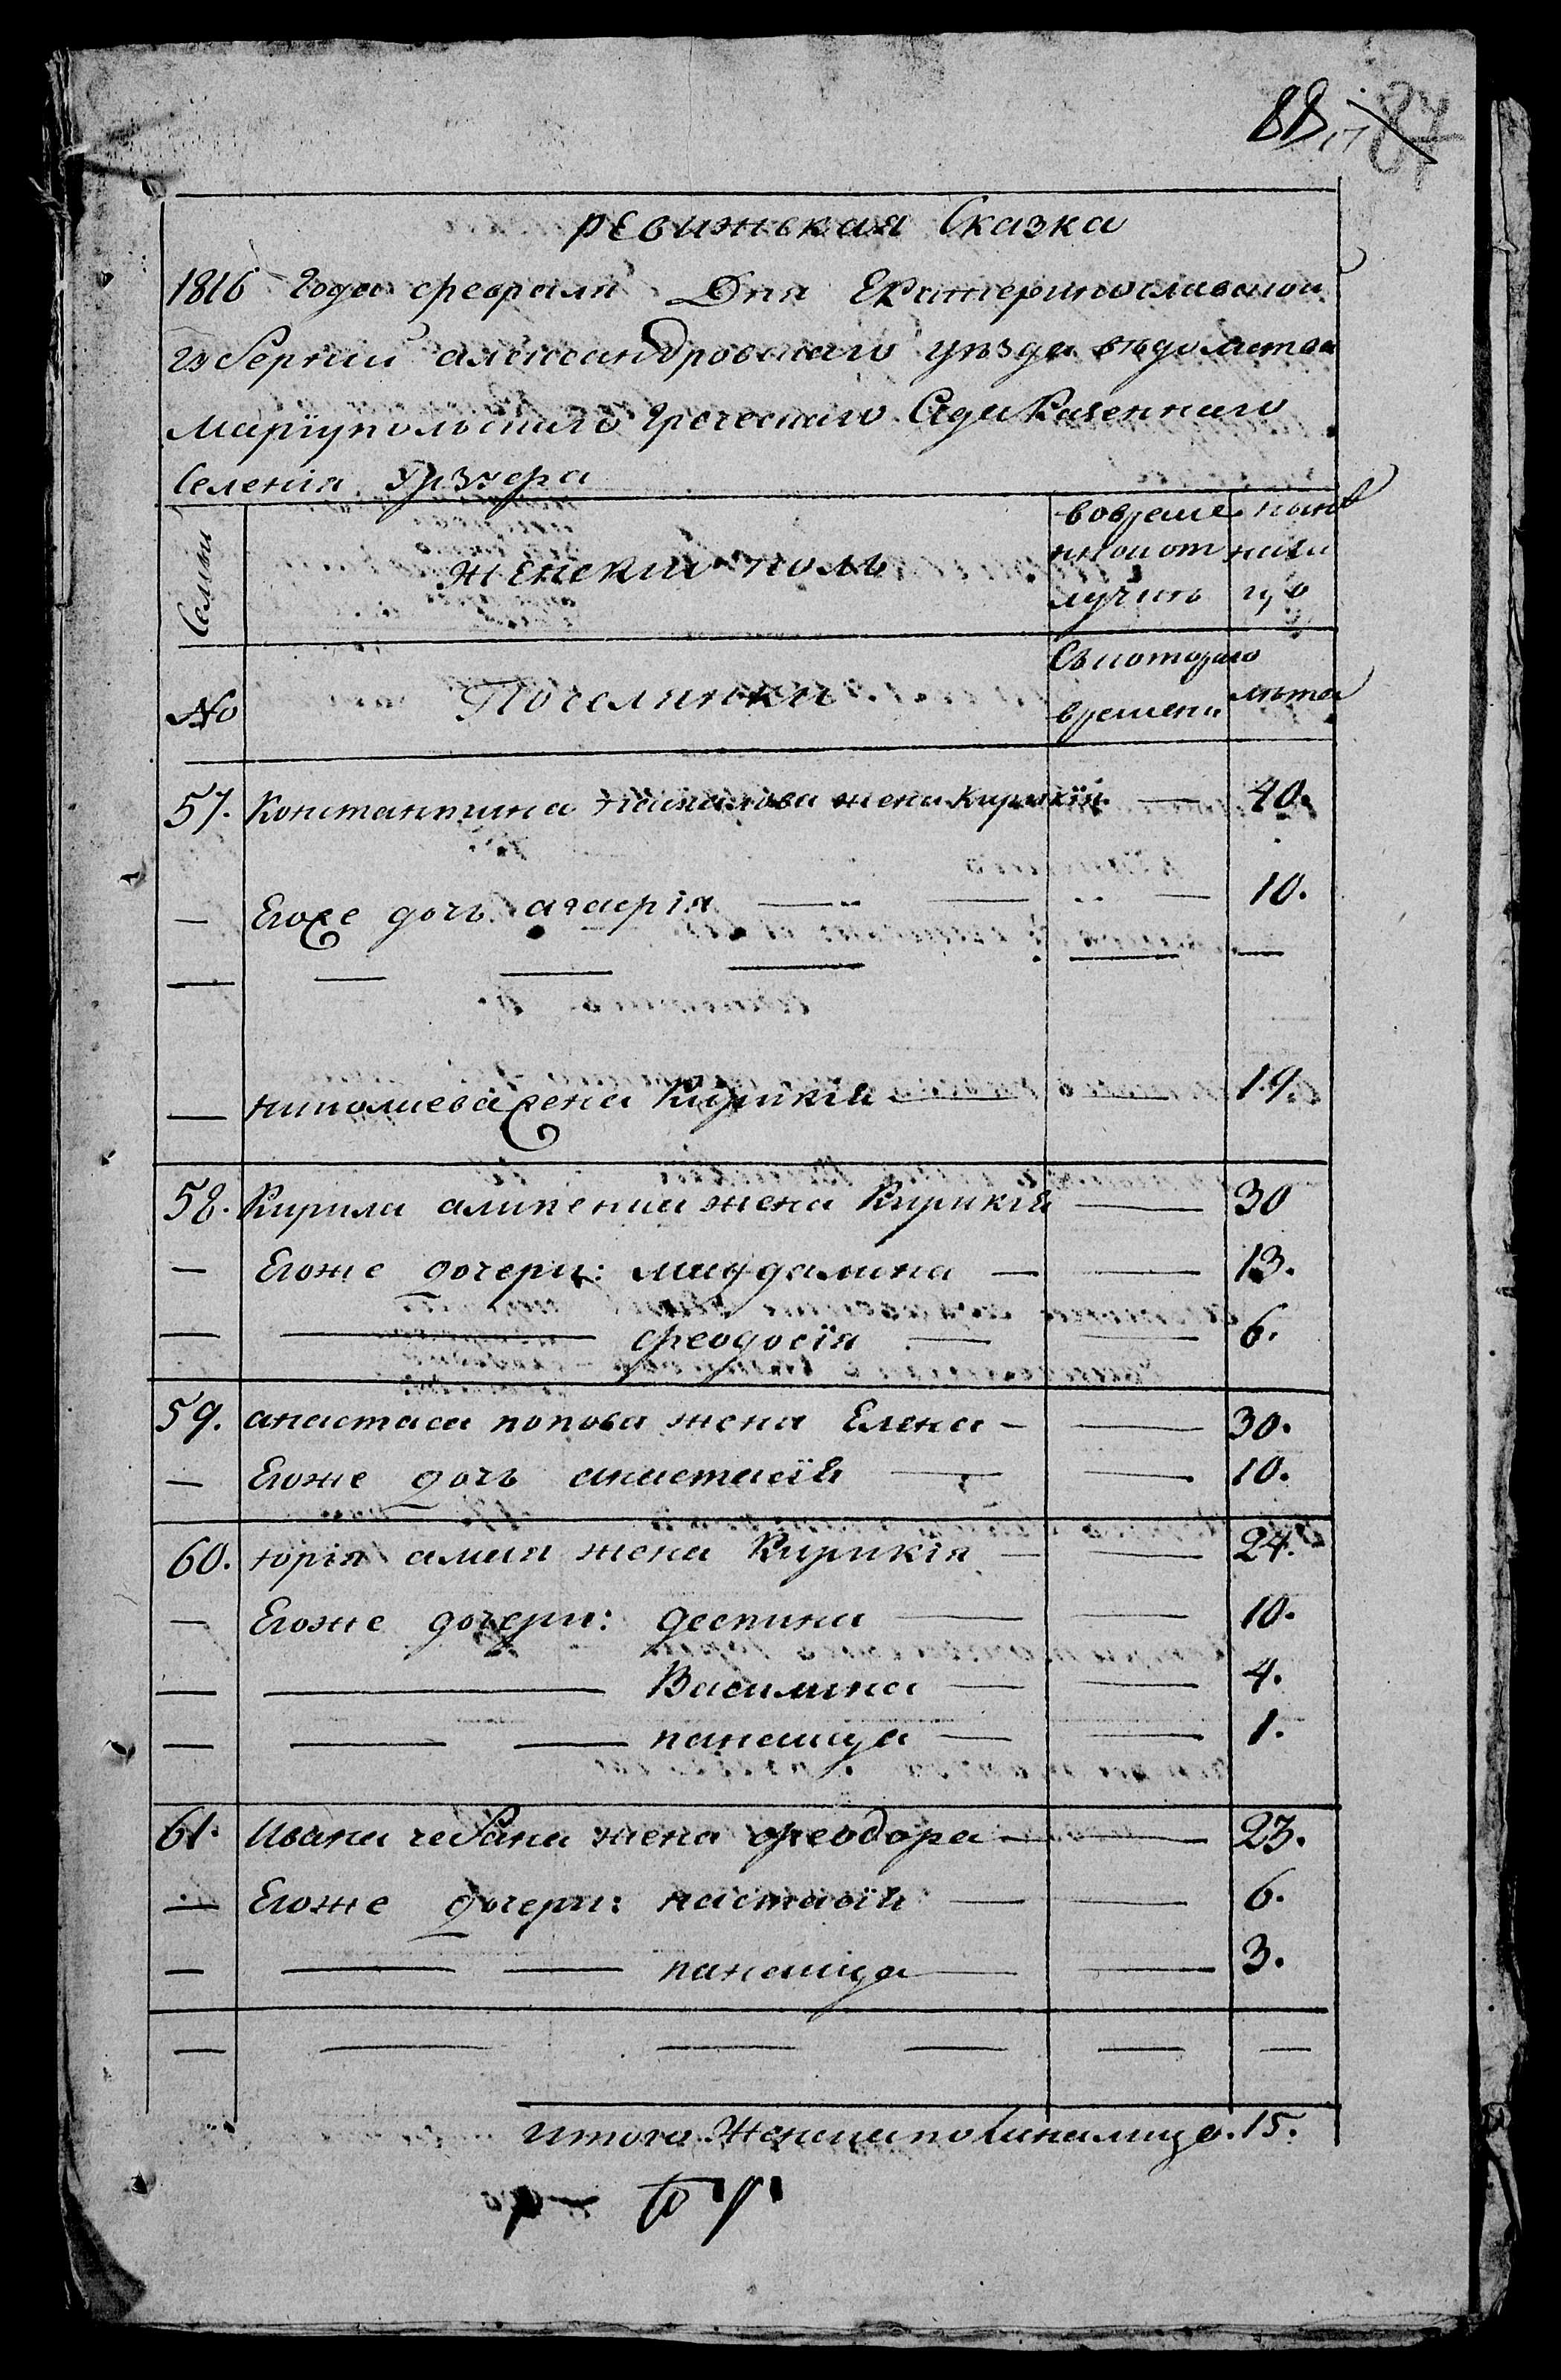 88
ревижская Сказка
1816 Года февраля Дня Екатеринославской
губернии александровскаго уѣзда ведомства
Мариупольскаго Греческаго Суда Казенного
Селения Урзуфа
Семьи
женски полъ
вовременной отлучкѣ
ныне налицо
№
Поселянъки
Скоторого времени
лѣта
57. Константина жена Кирикія — 40.
— Егоже дочь — 10.
— — — — — —
— николаева жена Кирикія — 19.
58. Кирила жена Кирикія — 30
— Егоже дочери: магдалина — — 13.
— — феодосія — — 6.
59. анастаса попова жена Елена — — 30.
— Егоже дочь анастасія — — 10.
60. юрія жена Кирикія — — 24.
— Егоже дочери: деспина — — 10.
— — Василина — — 4.
— — — панаиида — — 1.
61. Ивана чебана жена феодора — — 23.
— Егоже дочери: настасія — — 6.
— — — панаиида — — 3.
— — — — — —
итого Женска пола налицо. 15.